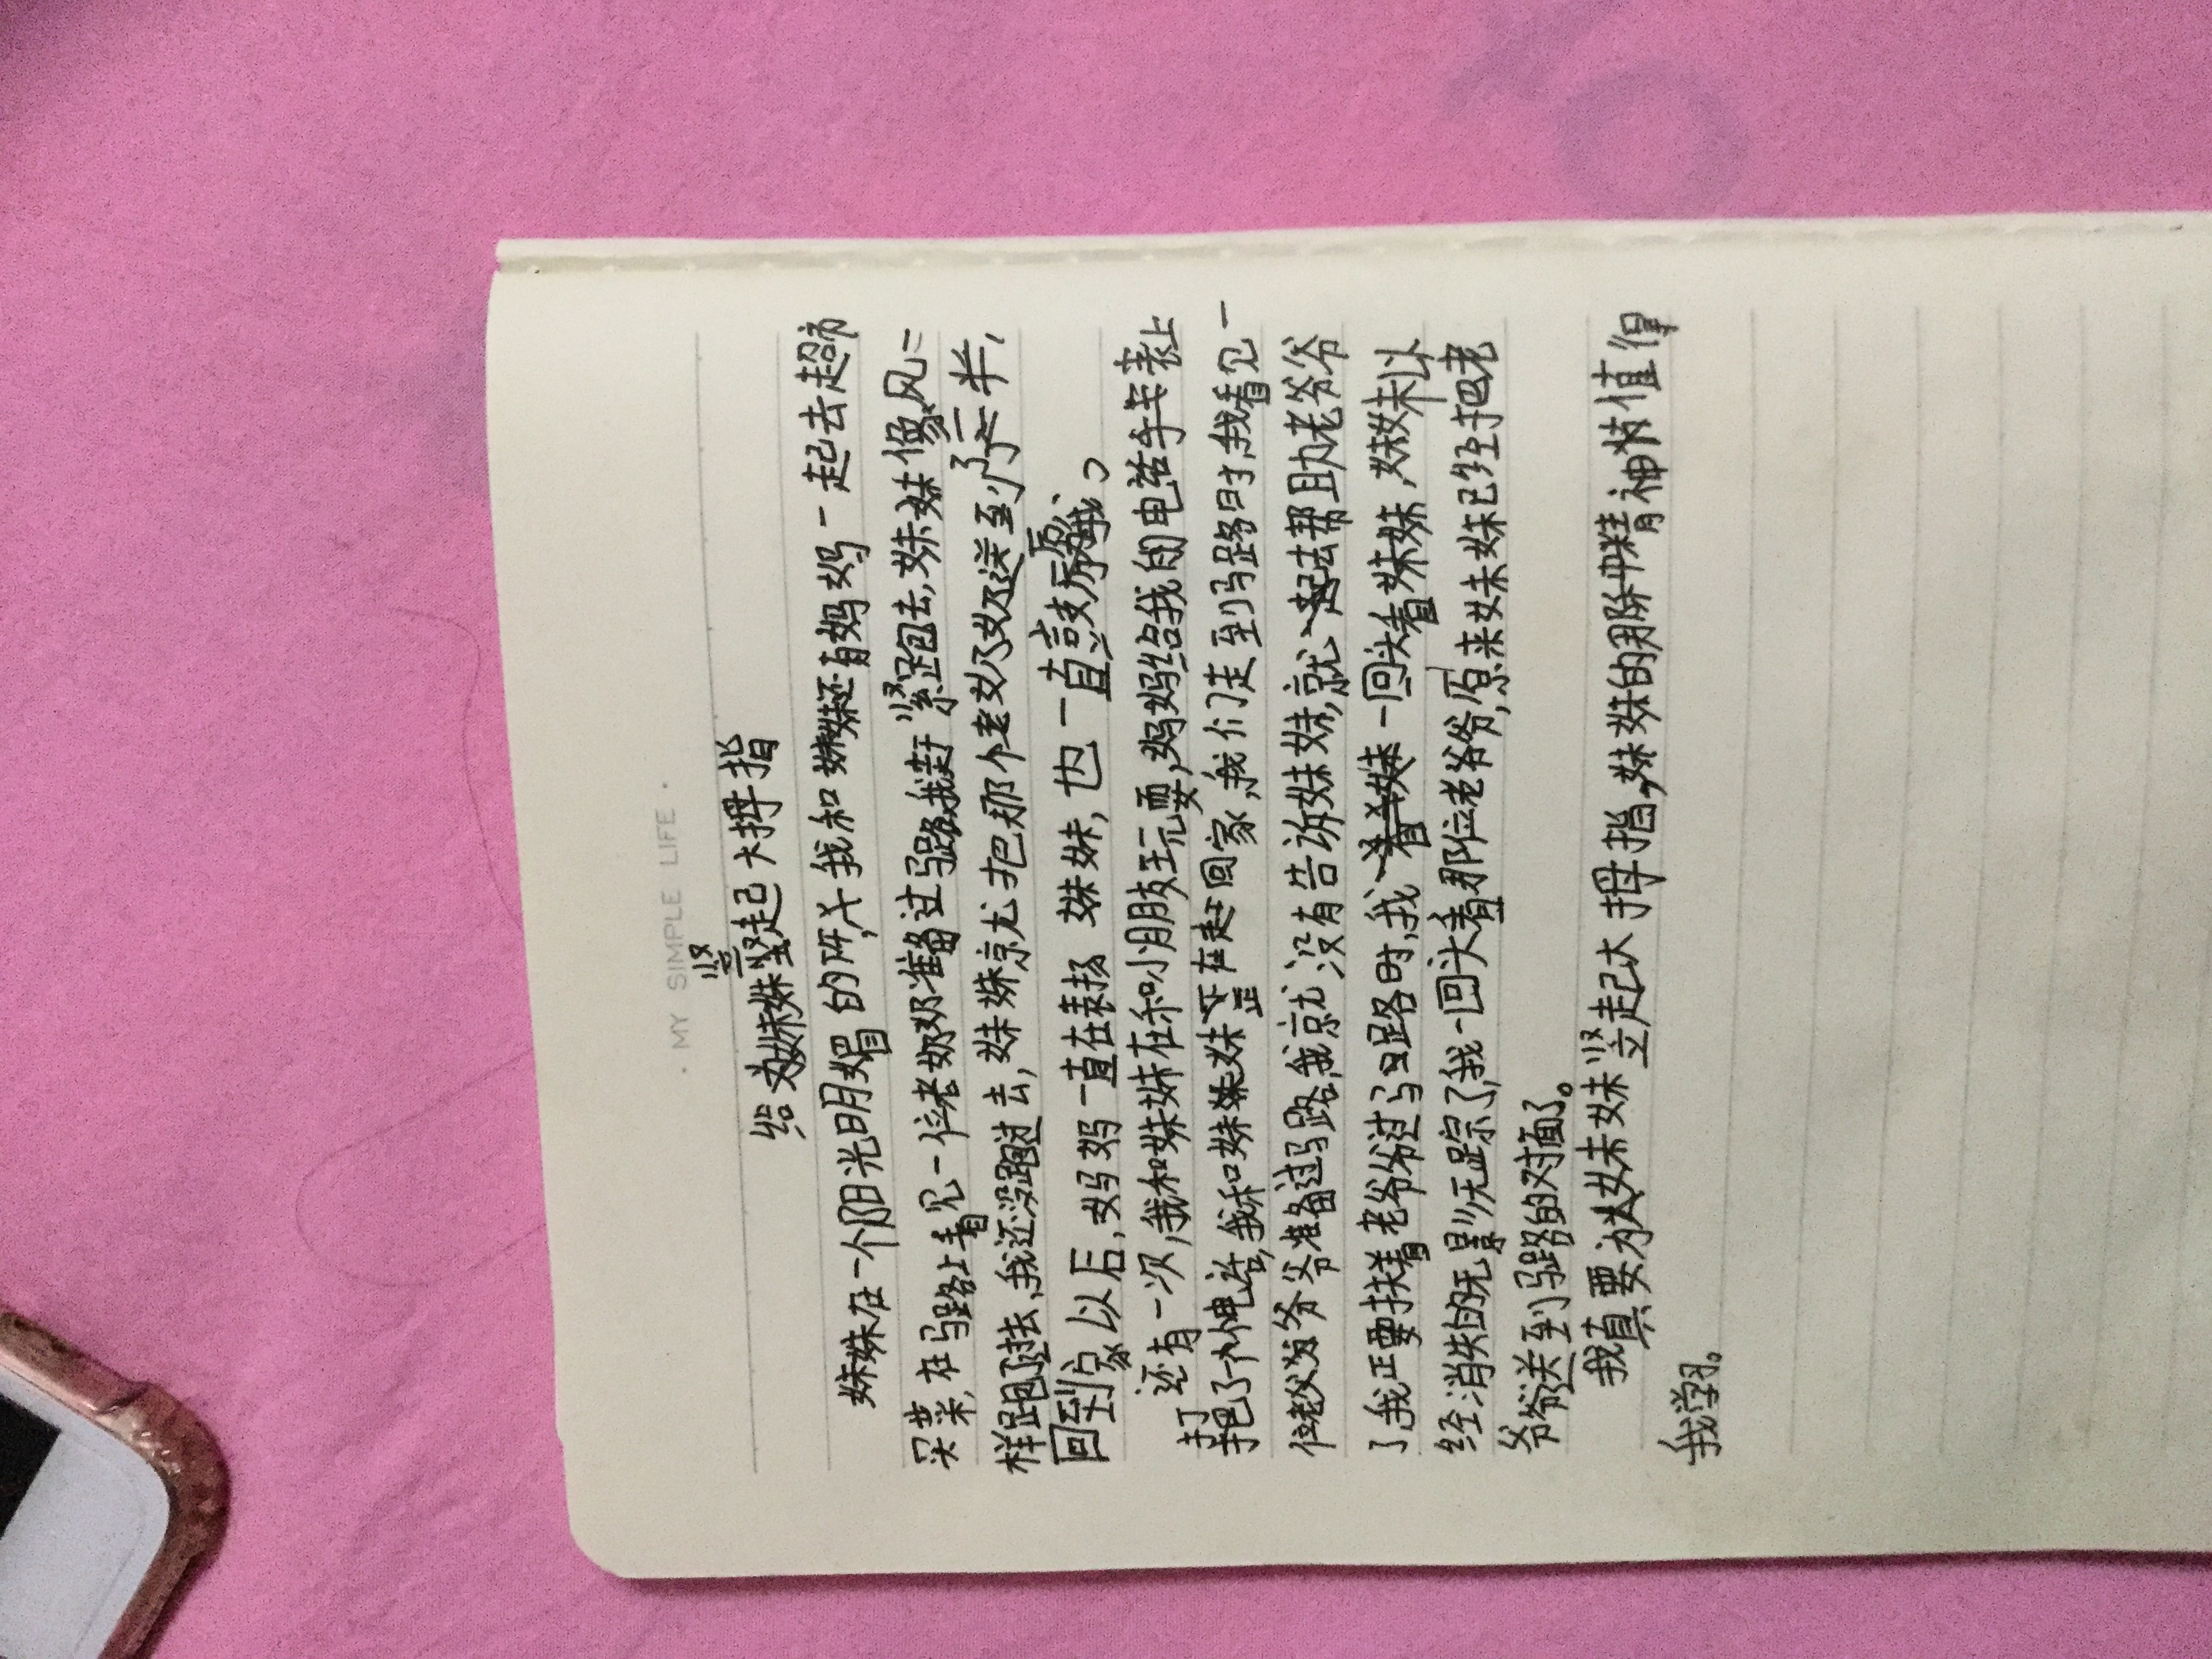 · MY SIMPLE LIFE ·
给为妹妹竖起大拇指
妹妹在一个阳光明媚的下午,我和妹妹还有妈妈一起去超市
买菜,在马路上看见一位老奶奶准备过马路,我赶紧跑去,妹妹像风一
样跑了过去,我还没跑过去,妹妹就把那个老奶奶送到了一半,
回到家以后,妈妈一直在表扬妹妹,也一直鼓励我。
还有一次,我和妹妹在和小朋友玩耍,妈妈给我的电话手表上
打了个电话,我和妹妹正在赶回家,我们走到马路时,我看见一
位老爷爷准备过马路,我就没有告诉妹妹,就去帮助老爷爷
了,我正要扶着老爷爷过马路时,我一回头看妹妹,妹妹以
经消失的无影无踪了,我一回头看那位老爷爷,原来妹妹已经把老
爷爷送到马路的对面了。
我真要为妹妹竖起大拇指,妹妹的那种精神值得
我学习。